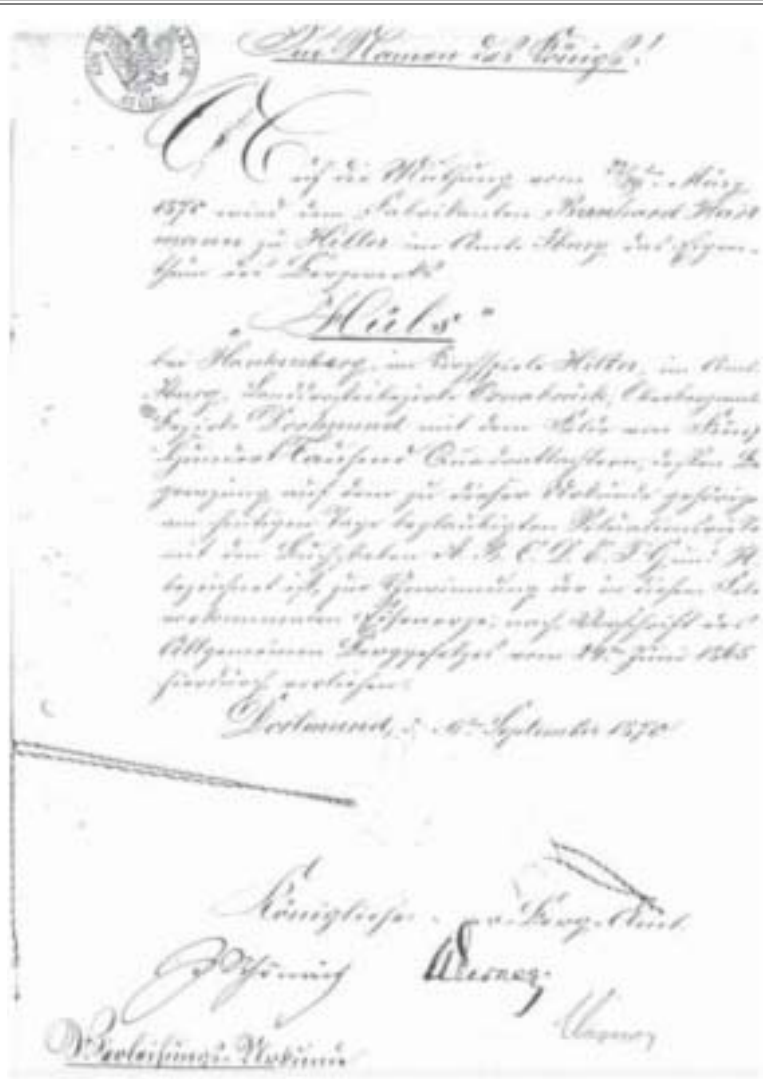 Im Namen des Königs!
Auf die Muthung vom März
1870 wird dem Fabrikanten Bernhard
mann zu Hilter im Amte Iburg das Eigen-
thum des Bergwerks
„Hüls“
bei Hankenberg, im Kirchspiele Hilter, im Amt
Iburg, Landdrosteibezirk Osnabrück, Oberbergamts
bezirk Dortmund mit dem Felde von Fünf
Hundert Tausend Quadratlachtern, dessen Be
grenzung auf dem zu dieser Urkunde gehörige
am heutigen Tage beglaubigten Situationsrisse
mit den Buchstaben A. B. C. D. E. F. G. und H.
bezeichnet ist, zur Gewinnung der in diesem Felde
vorkommenden Eisenerze, nach Vorschrift des
Allgemeinen Berggesetzes vom 24ten Juni 1865
hierdurch verliehen.
Dortmund, d. September 1870
Königliches Berg-Amt.
Verleihungs-Urkunde